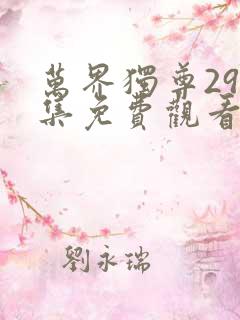 萬界獨尊29
集免費觀看
劉永瑞